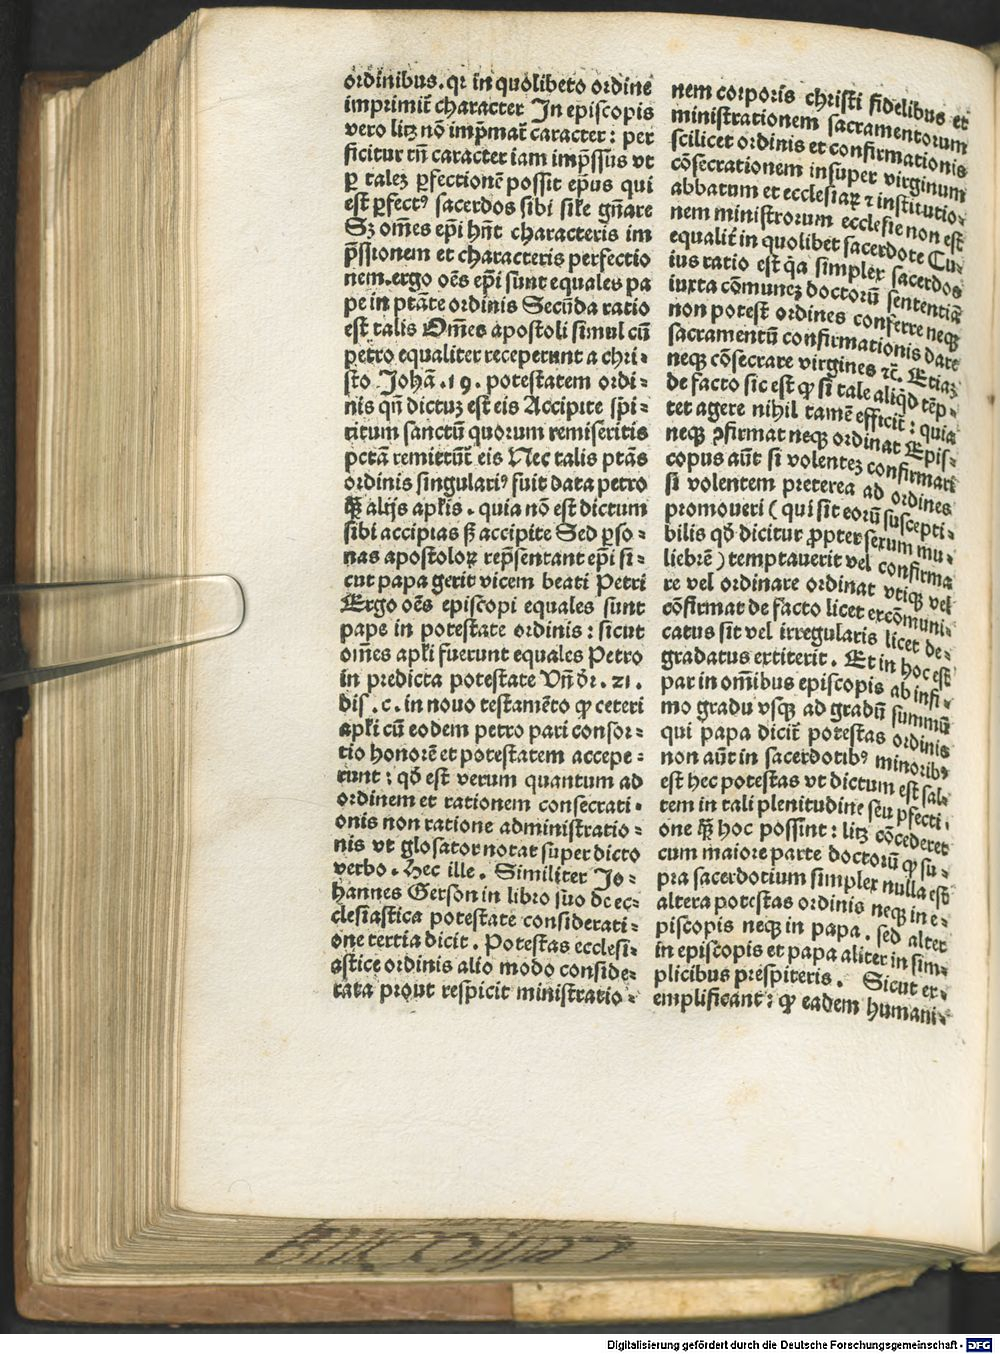 ordinibus. qr in quolibeto ordine
imprimit̃ character In episcopis
vero litꝫ nõ imp̃mat̃ caracter: per
ficitur tñ caracter iam imp̃ssus vt
ꝑ talez ꝑfectionẽ possit ep̃us qui
est ꝑfectꝰ sacerdos sibi sile gñare
Sꝫ om̃es ep̃i hñt characteris im
p̃ssionem et characteris perfectio
nem. ergo oẽs ep̃i sunt equales pa
pe in ptãte ordinis Secũda ratio
est talis Om̃es apostoli simul cũ
petro equaliter receperunt a chri⸗
sto Johã .19. potestatem ordi⸗
nis qñ dictuz est eis Accipite spi⸗
ritum sanctũ quorum remiseritis
pctã remittũt̃ eis Nec talis ptãs
ordinis singulariꝰ fuit data petro
q̃ȝ alijs apl̃is. quia nõ est dictum
sibi accipias sꝫ accipite Sed ꝑso⸗
nas apostoloꝝ rep̃sentant ep̃i si⸗
cut papa gerit vicem beati Petri
Ergo oẽs episcopi equales sunt
pape in potestate ordinis: sicut
om̃es apl̃i fuerunt equales Petro
in predicta potestate Vñ dr̃. 21.
dis .c. in nouo testamẽto ꝙ ceteri
apl̃i cũ eodem petro pari consor⸗
tio honorẽ et potestatem accepe⸗
runt: qđ est verum quantum ad
ordinem et rationem consecrati⸗
onis non ratione administratio⸗
nis vt glosator notat super dicto
verbo. Hec ille. Similiter Jo⸗
hannes Gerson in libro suo de ec⸗
clesiastica potestate considerati⸗
one tertia dicit. Potestas ecclesi⸗
astice ordinis alio modo conside⸗
rata prout respicit ministratio⸗
nem corporis christi fidelibus et
ministrationem sacramentorum
scilicet ordinis et confirmationis
cõsecrationem insuper virginum
abbatum et ecclesiaꝝ ⁊ institutio⸗
nem ministrorum ecclesie non est
equalit̃ in quolibet sacerdote Cu⸗
ius ratio est q̃a simplex sacerdos
iuxta cõmunez doctorũ sententiã
non potest ordines conferre neqꝫ
sacramentũ confirmationis dare
neqꝫ cõsecrare virgines ⁊c̃. Etiaz
de facto sic est ꝙ si tale aliq̃d tẽp⸗
tet agere nihil tamẽ efficit: quia
neqꝫ ꝯfirmat neqꝫ ordinat Epis⸗
copus aũt si volentez confirmari
si volentem preterea ad ordines
promoueri (qui sit eorũ suscepti⸗
bilis qđ dicitur ꝓpter sexum mu⸗
liebrẽ) temptauerit vel confirma
re vel ordinare ordinat vtiqꝫ vel
cõfirmat de facto licet excõmuni⸗
catus sit vel irregularis licet de⸗
gradatus extiterit. Et in hoc est
par in om̃ibus episcopis ab infi⸗
mo gradu vsqꝫ ad gradũ summũ
qui papa dicit̃ potestas ordinis
non aũt in sacerdotibꝰ minoribꝰ
est hec potestas vt dictum est sal⸗
tem in tali plenitudine seu ꝑfecti⸗
one q̃ȝ hoc possint: litꝫ cõcederet
cum maiore parte doctorũ ꝙ su⸗
pra sacerdotium simplex nulla est
altera potestas ordinis neqꝫ in e⸗
piscopis neqꝫ in papa. sed alter
in episcopis et papa aliter in sim⸗
plicibus prespiteris. Sicut ex⸗
emplificant: ꝙ eadem humani⸗
Digitalisierung gefördert durch die Deutsche Forschungsgemeinschaft - DFG